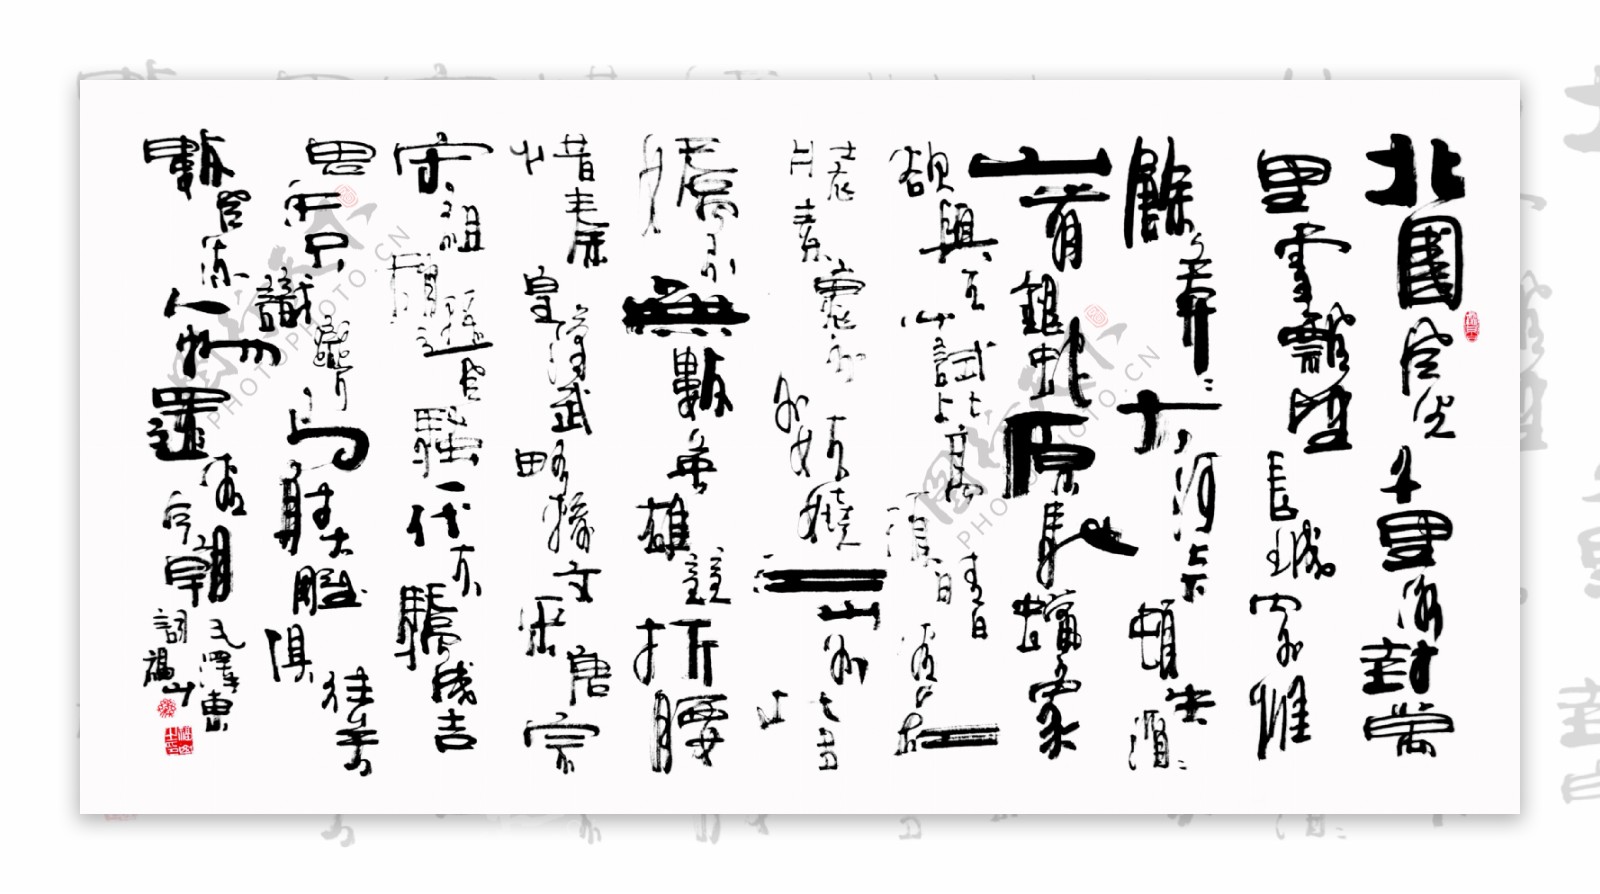 北國風光千里冰封萬
里雪飄望長城內外惟
餘莽莽大河上下頓失滔滔
山舞銀蛇原馳蠟象
欲與天公試比高須晴日看紅
裝素裹分外妖嬈江山如此多
嬌引無數英雄競折腰
惜秦皇漢武略輸文采唐宗
宋祖稍遜風騷一代天驕成吉
思汗只識彎弓射大雕俱往矣
數風流人物還看今朝
毛澤東
詞福山
PHOTOPHOTO.CN
PHOTOPHOTO.CN